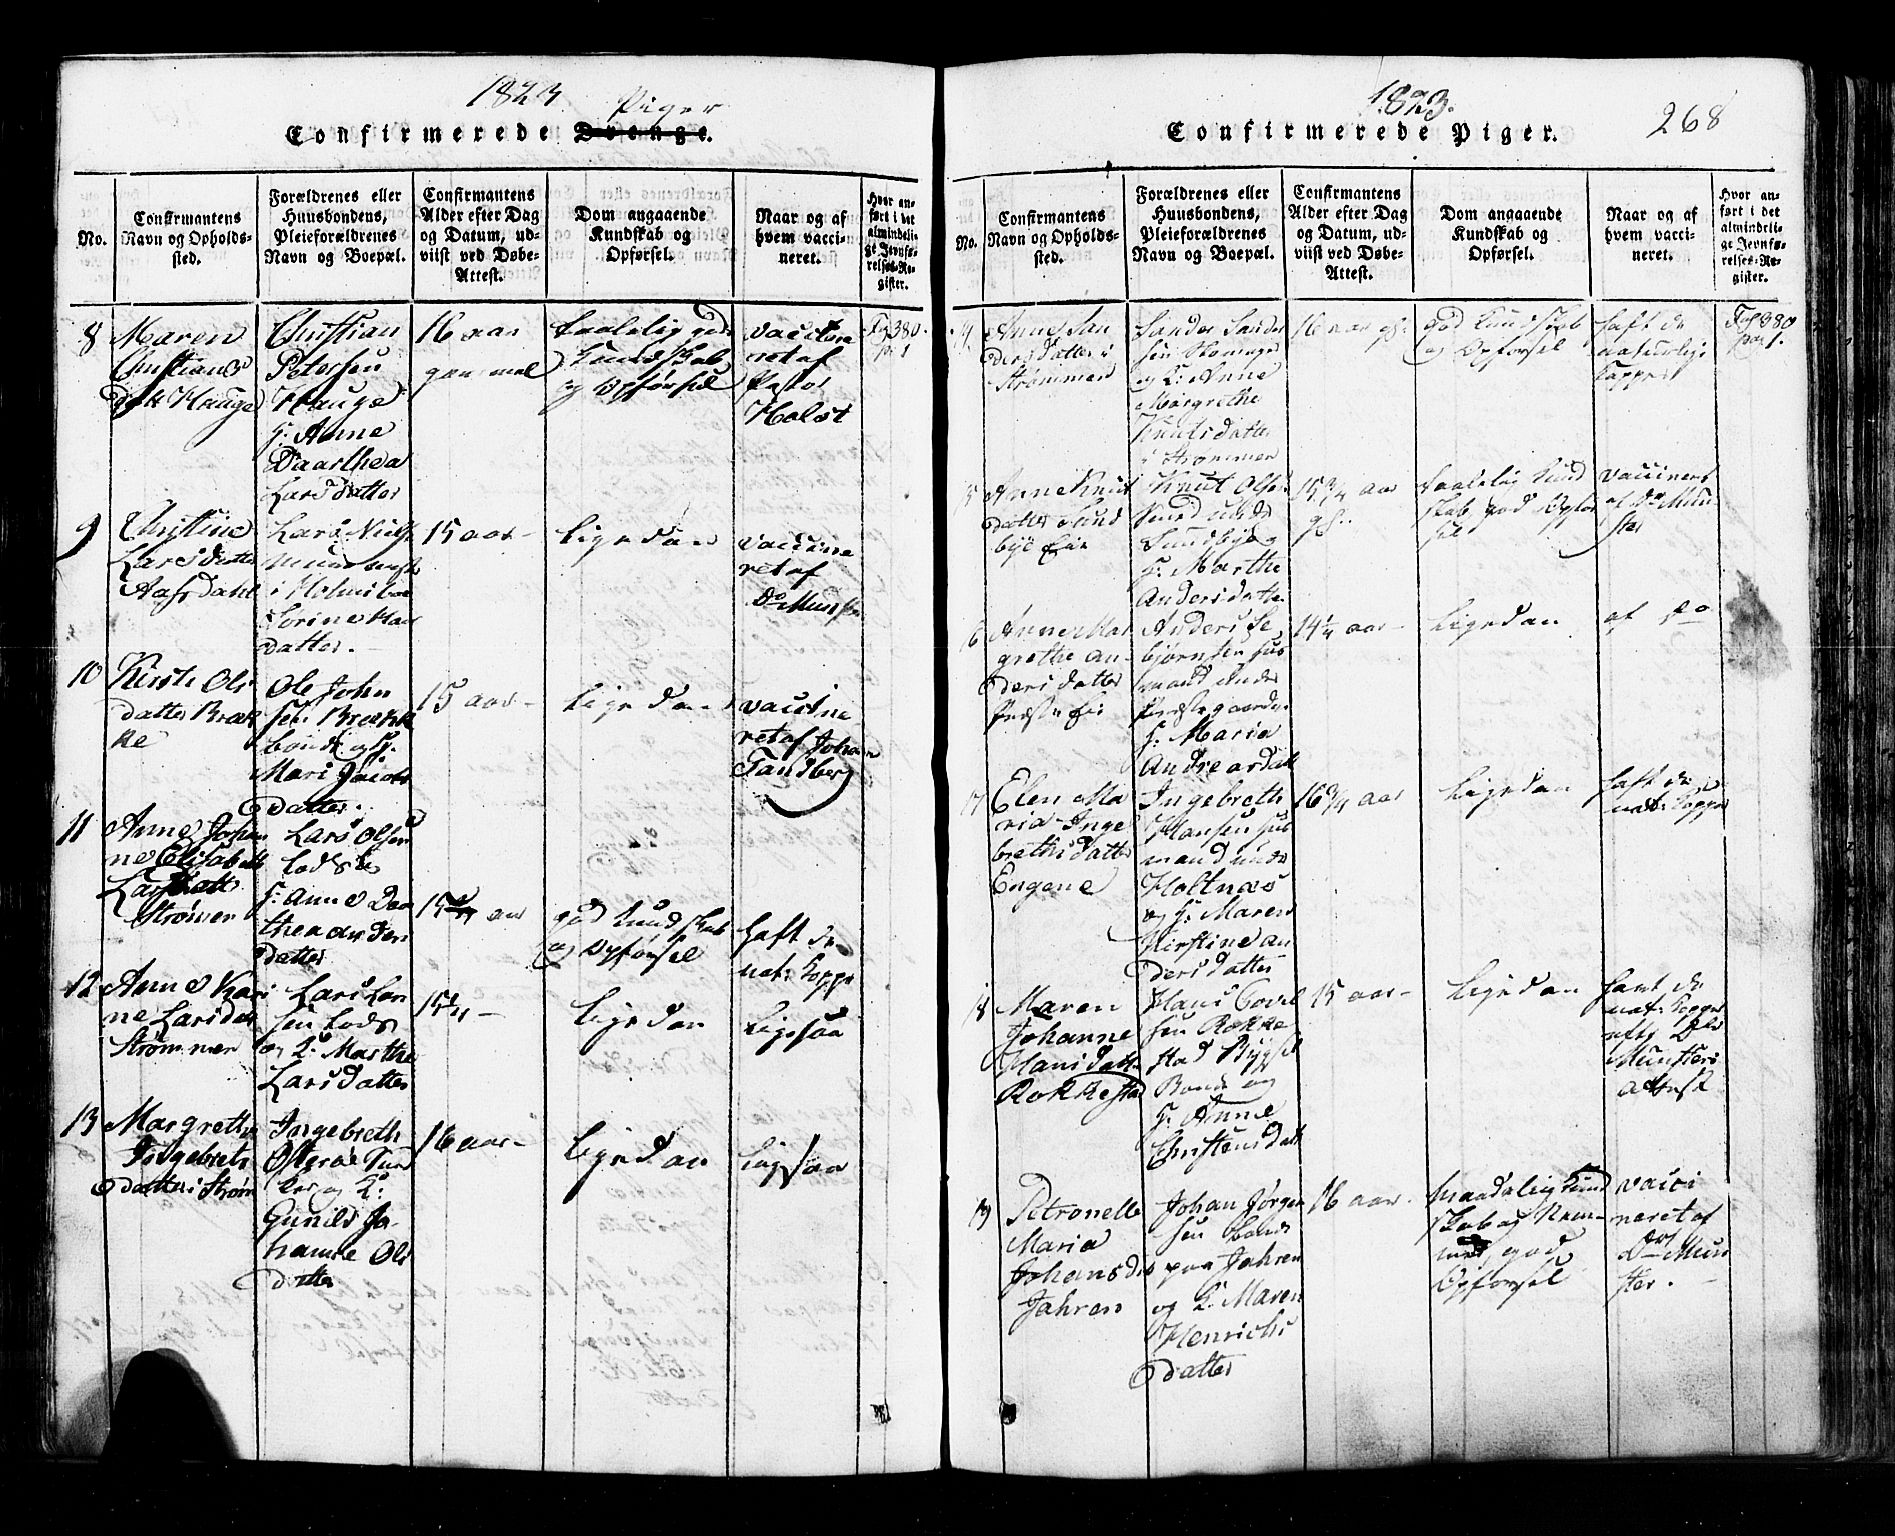 1823
Piger
Confirmerede Drenge.
No.
Confirmantens
Navn og Opholds-
sted.
Forældrenes eller
Huusbondens,
Pleieforældrenes
Navn og Boepæl.
Confirmantens
Alder efter Dag
og Datum, ud-
viist ved Døbe-
Attest.
Dom angaaende
Kundskab og
Opførsel.
Naar og af
hvem vacci-
neret.
Hvor an-
ført i det
almindeli-
ge Jevnfø-
relses-Re-
gister.
8
Maren
Christians
datt Hauge
Christian
Petersen
Hauge
H: Anne
Daarthea
Larsdatter
16 aar
gammel
taalelig god
Kundskab
og Opførsel
vaccine
ret af
Pastor
Holst
Fog 380.
No 1
9
Christine
Larsdatter
Aafsdahl
Lars Niels
i Holmsboe
Sorine Han
datter.
15 aar
ligedan
vaccine
ret af
Dr Munster
10
Kirsti Ols
datter Bræk
ke
Ole John
sen Brækk
bonde og H.
Mari Jacobs
datter.
15 aar
ligedan
vaccine
ret af Johan
Tandberg
11
Anne Johan
ne Elisabeth
Larsdatt
Strømmen
Lars Olsen
Lods
H: Anne Dor
thea anders
datter
15 aar
god Kundskab
og Opførsel
haft de
nat: Kopper
12
Anne Kari
ne Larsdat
Strømmen
Lars Lar
sen Lods
og K: Marthe
Larsdatter
15 1/4
ligedan
ligesaa
13
Margrethe
Ingebrets
datter i Strøm
Ingebreth
Osterøe
og K:
Gunild Jo
hanne Ols
datter
16 aar
ligedan
ligesaa
1823.
268
Confirmerede Piger.
No.
Confirmantens
Navn og Opholds-
sted.
Forældrenes eller
Huusbondens,
Pleieforældrenes
Navn og Boepæl.
Confirmantens
Alder efter Dag
og Datum, ud-
viist ved Døbe-
Attest.
Dom angaaende
Kundskab og
Opførsel.
Naar og af
hvem vacci-
neret.
Hvor an-
ført i det
almindeli-
ge Jevnfø-
relses-Re-
gister.
14
Anne San
ders datter i
Strømmen
Sander Sander
sen Skomager
og K: Anne
Margrethe
Knutsdatter
i Strømmen
16 aar gl:
god Kundskab
og Opførsel
haft de
naturlige
Kopper
Fog 380
No 1.
15
Anne Knut
datter Sund
bye Eie
Knut Olsen
Smed under
Sundbye og
H: Marthe
Andersdatter
15 3/4 aar
gl.
taalelig Kund
skab, god Opfør
sel
vaccineret
af Dr Mun
ster
16
Anne Mar
grethe An
dersdatter
Præste Eie
Anders Es
bjørnsen hus
mand under
Præstegaarden
H: Maria
Andreasdatt
14 1/4 aar
ligedan
af Do
17
Elen Ma
ria Inge
brethsdatter
Engene
Ingebreth
Hansen hus
mand under
Holtnæs
og H: Maren
Kirstine An
dersdatter
16 3/4 aar
ligedan
haft de
nat: Kopper
18
Maren
Johanne
Hansdatter
Rokkestad
Hans
sen Rokke
stad
Bonde og
H: Anne
Christensdatt
15 aar
ligedan
haft de
nat: Kopper
Munsters
attest
19
Petronelle
Maria
Johansdat
Jahren
Johan Jørgen
sen
paa Jahren
og K: Maren
Henrichs
datter
16 aar
maadelig Kund
skab og
med god
Opførsel
vacci
neret af
Dr Mun
ster.